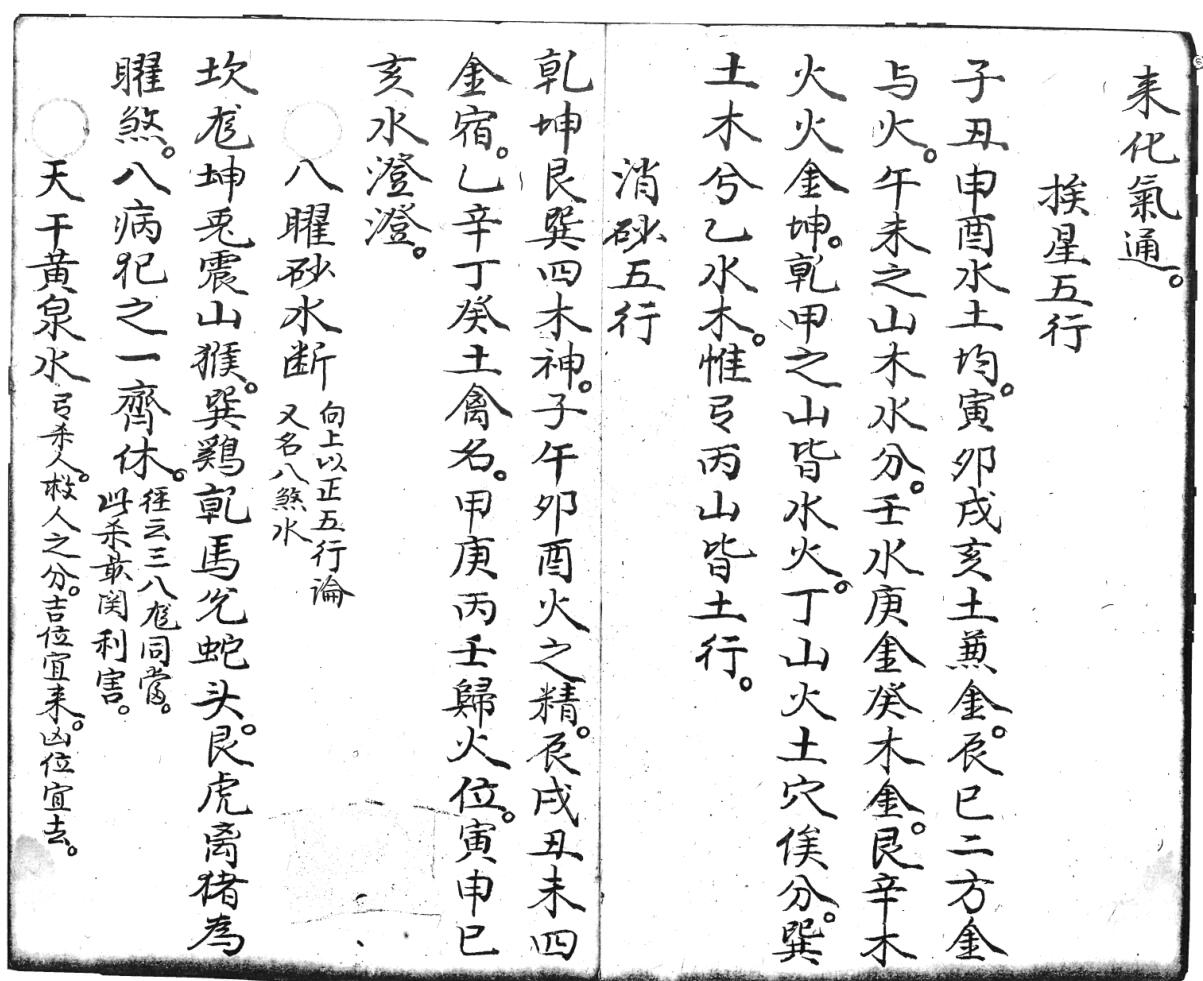 来化氣通。
挨星五行
子丑申酉水土均。寅卯戌亥土兼金。辰巳二方金
与火。午未之山木水分。壬水庚金癸木金。艮辛木
火火金坤。乾甲之山皆水火。丁山火土穴俟分。巽
土木兮乙水木。惟丙山皆土行。
消砂五行
乾坤艮巽四木神。子午卯酉火之精。辰戌丑未四
金宿。乙辛丁癸土禽名。甲庚丙壬歸火位。寅申巳
亥水澄澄。
八曜砂水断
向上以正五行論
又名八煞水
坎龙坤兎震山猴。巽鷄乾馬兊蛇头。艮虎离猪為
曜煞。八病犯之一齊休。
徑云三八龙同當。
此杀最関利害。
天干黄泉水
杀人救人之分。吉位宜来。凶位宜去。